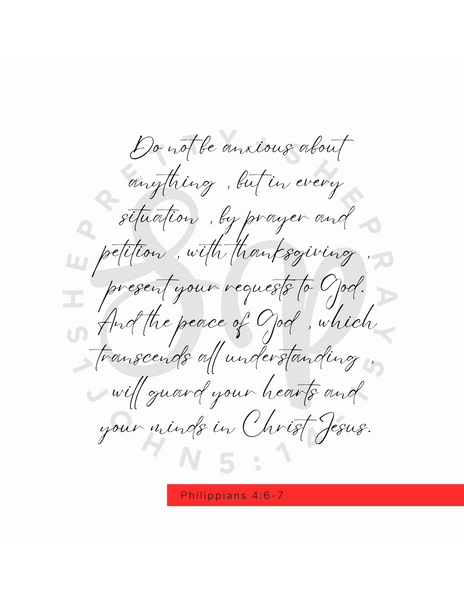 Do not be anxious about
anything , but in every
situation , by prayer and
petition , with thanksgiving ,
present your requests to God.
And the peace of God , which
transcends all understanding ,
will guard your hearts and
your minds in Christ Jesus.
JOHN5:14
Philippians 4:6-7